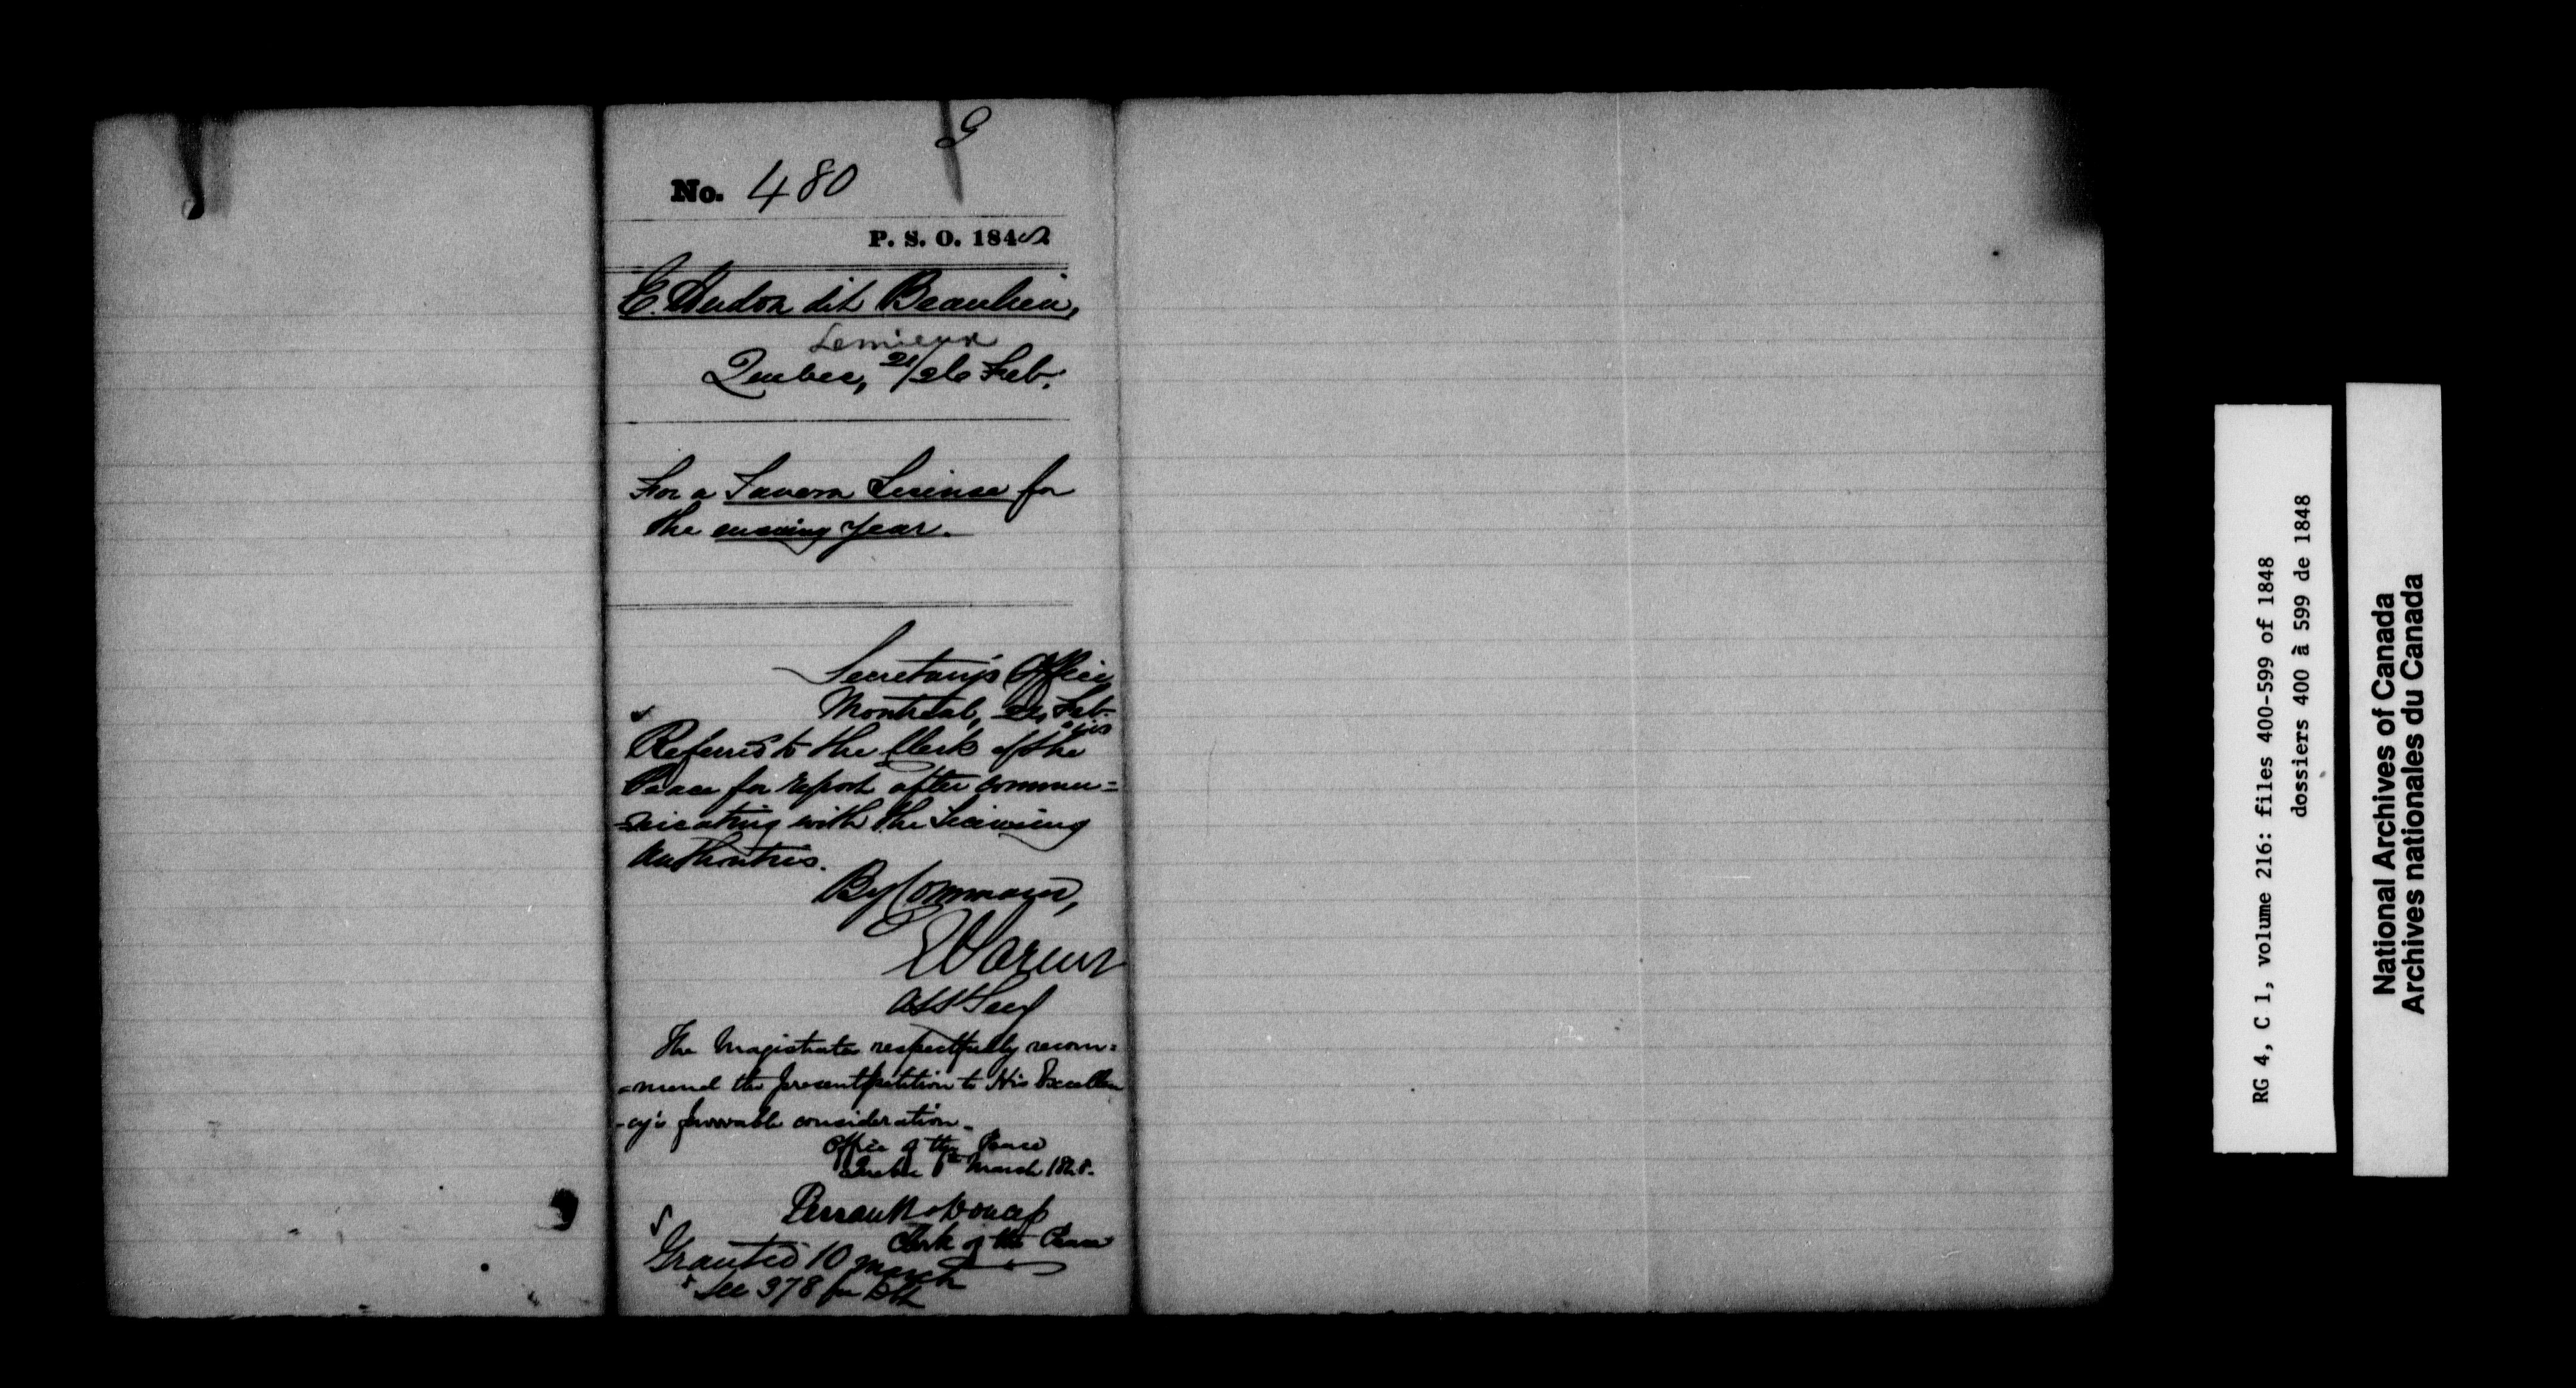 G
No. 480
P. S. O. 1848
E. Hudon dit Beaulieu,
Lemieux
Quebec, 21/26 Feb.
For a Tavern License for
the ensuing year.
Secretary's Office
Montreal, Feb.
Referred to the Clerk of the
Peace for report after commu=
=nicating with the Licensing
Authorities.
By Command,
E Parent
Asst Secy
The Magistrates respectfully recom=
=mend the present petition to His Excellen
-cy's favorable consideration.
Office of the Peace
Quebec March 1848.
Perrault & Doucet
Clerk of the Peace
Granted 10 March
See 378 for
RG 4, C 1, volume 216: files 400-599 of 1848
dossiers 400 à 599 de 1848
National Archives of Canada
Archives nationales du Canada